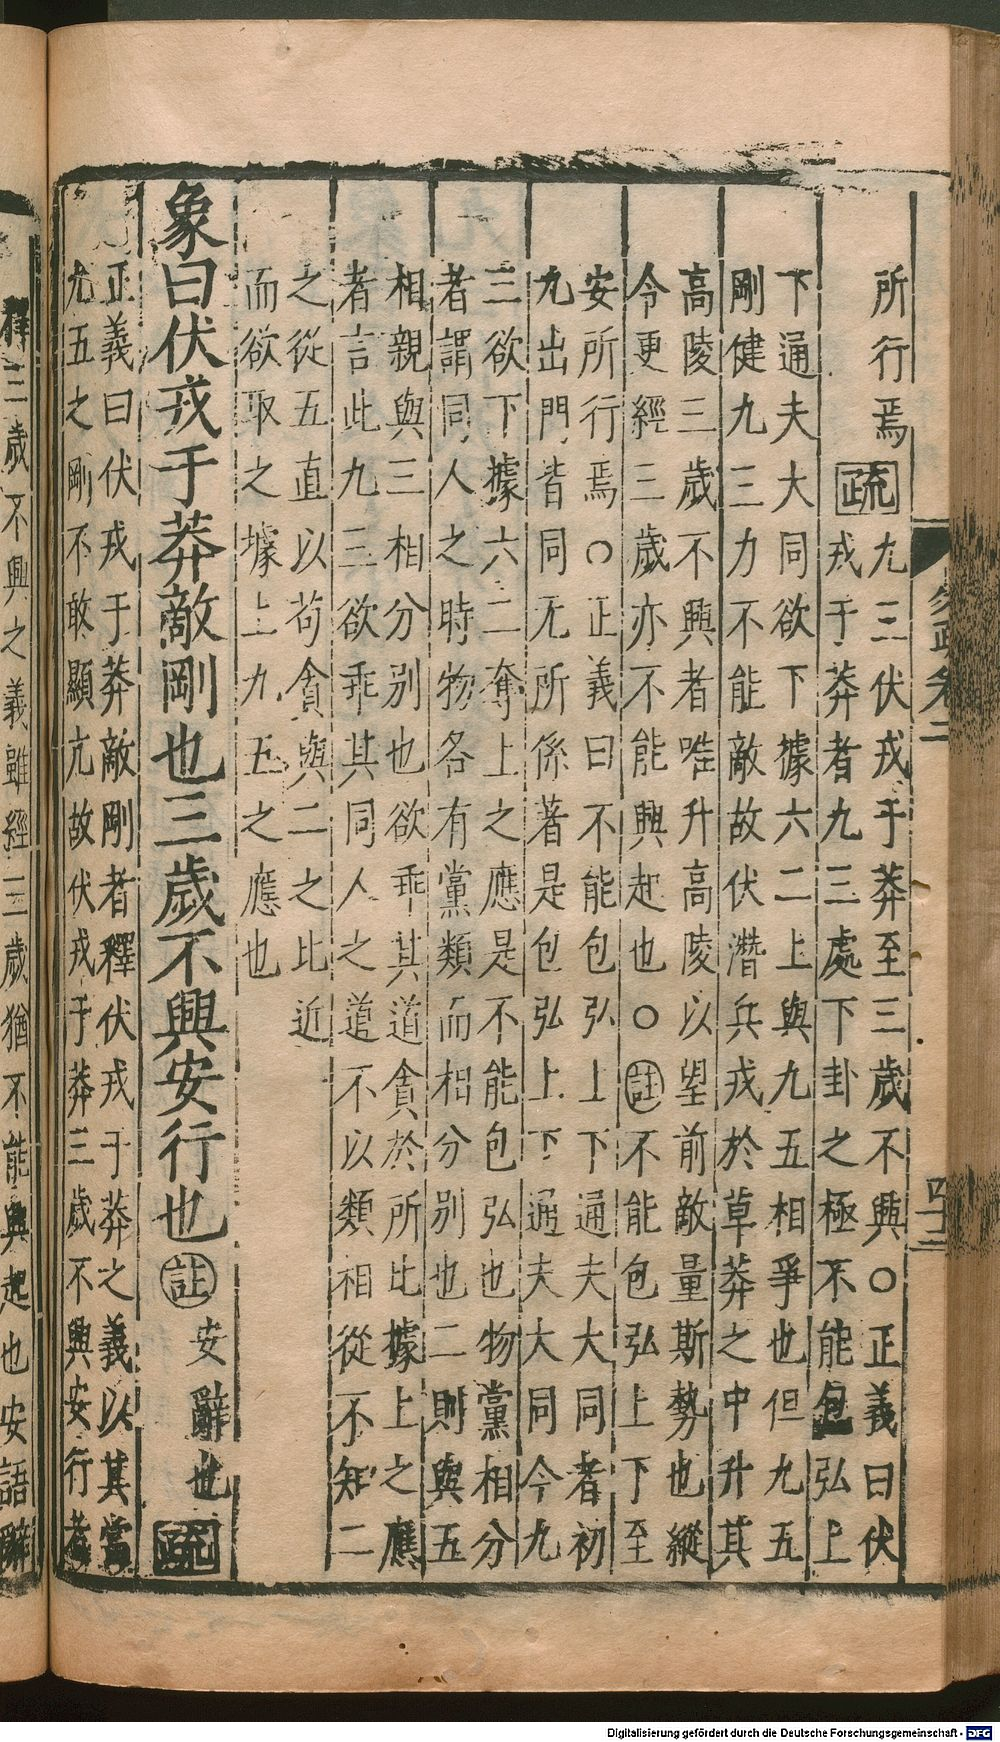 所行焉疏九三伏戎于莽至三歲不興○正義曰伏
戎于莽者九三處下卦之極不能包弘上
下通夫大同欲下據六二上與九五相爭也但九五
剛健九三力不能敵故伏潛兵戎於草莽之中升其
高陵三歲不興者唯升高陵以望前敵量斯勢也縱
令更經三歲亦不能興起也○註不能包弘上下至
安所行焉○正義曰不能包弘上下通夫大同者初
九出門皆同无所係著是包弘上下通夫大同今九
三欲下據六二奪上之應是不能包弘也物黨相分
者謂同人之時物各有黨類而相分別也二則與五
相親與三相分別也欲乖其道貪於所比據上之應
者言此九三欲乖其同人之道不以類相從不知二
之從五直以苟貪與二之比近
而欲取之據上九五之應也
象曰伏戎于莽敵剛也三歲不興安行也註安辭也疏
正義曰伏戎于莽敵剛者釋伏戎于莽之義以其當
九五之剛不敢顯亢故伏戎于莽三歲不興安行者
釋三歲不興之義雖經三歲猶不能興起也安語辭
易疏卷二
四十三
Digitalisierung gefördert durch die Deutsche Forschungsgemeinschaft - DFG